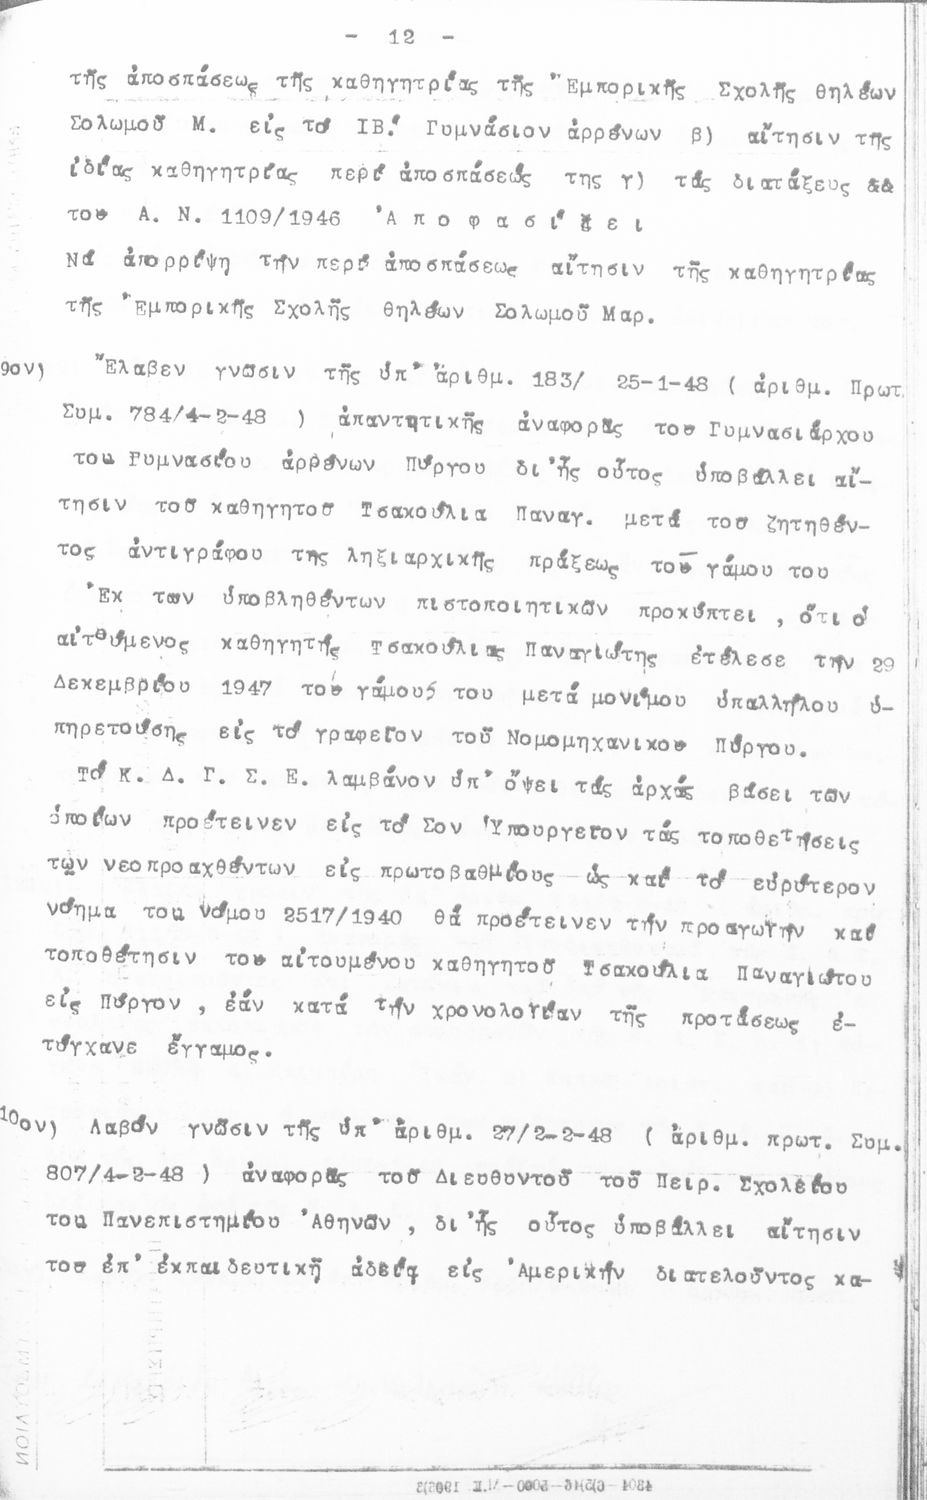 - 12 -
τῆς ἀποσπάσεως τῆς καθηγητρίας τῆς Ἐμπορικῆς Σχολῆς θηλέων
Σολωμοῦ Μ. εἰς τό ΙΒ! Γυμνάσιον ἀρρένων β) αἴτησιν της
ἰδίας καθηγητρίας περί ἀποσπάσεώς της γ) τάς διατάξεις &&
του Α. Ν. 1109/1946 'Α π ο φ α σ ί ζ ε ι
Νά ἀπορρίψη τήν περί ἀποσπάσεως αἴτησιν τῆς καθηγητρίας
τῆς Ἐμπορικῆς Σχολῆς θηλέων Σολωμοῦ Μαρ.
9ον) Ἔλαβεν γνῶσιν τῆς ὑπ' ἀριθμ. 183/ 25-1-48 ( ἀριθμ. Πρωτ.
Συμ. 784/4-2-48 ) ἀπαντητικῆς ἀναφορᾶς του Γυμνασιάρχου
του Γυμνασίου ἀρρένων Πύργου δι' ἧς οὗτος ὑποβάλλει αἴ-
τησιν τοῦ καθηγητοῦ Τσακούλια Παναγ. μετά του ζητηθέν-
τος ἀντιγράφου της ληξιαρχικῆς πράξεως τοῦ γάμου του
Ἐκ των ὑποβληθέντων πιστοποιητικῶν προκύπτει , ὅτι ὁ
αἰτούμενος καθηγητής Τσακούλιας Παναγιώτης ἐτέλεσε τήν 29
Δεκεμβρίου 1947 τούς γάμους του μετά μονίμου ὑπαλλήλου ὑ-
πηρετούσης εἰς τό γραφεῖον τοῦ Νομομηχανικου Πύργου.
Τό Κ. Δ. Γ. Σ. Ε. λαμβάνον ὑπ' ὄψει τάς ἀρχάς βάσει τῶν
ὁποίων προέτεινεν εἰς τό Σον Ὑπουργεῖον τάς τοποθετήσεις
τῶν νεοπροαχθέντων εἰς πρωτοβαθμίους ὡς καί τό εὐρύτερον
νόημα του νόμου 2517/1940 θά προέτεινεν τήν προαγωγήν καί
τοποθέτησιν του αἰτουμένου καθηγητοῦ Τσακούλια Παναγιώτου
εἰς Πύργον , ἐάν κατά τήν χρονολογίαν τῆς προτάσεως ἐ-
τύγχανε ἔγγαμος.
10ον) Λαβόν γνῶσιν τῆς ὑπ' ἀριθμ. 27/2-2-48 ( ἀριθμ. πρωτ. Συμ.
807/4-2-48 ) ἀναφορᾶς τοῦ Διευθυντοῦ τοῦ Πειρ. Σχολείου
του Πανεπιστημίου Ἀθηνῶν , δι' ἧς οὗτος ὑποβάλλει αἴτησιν
του ἐπ' ἐκπαιδευτικῇ ἀδείᾳ εἰς Ἀμερικήν διατελοῦντος κα-